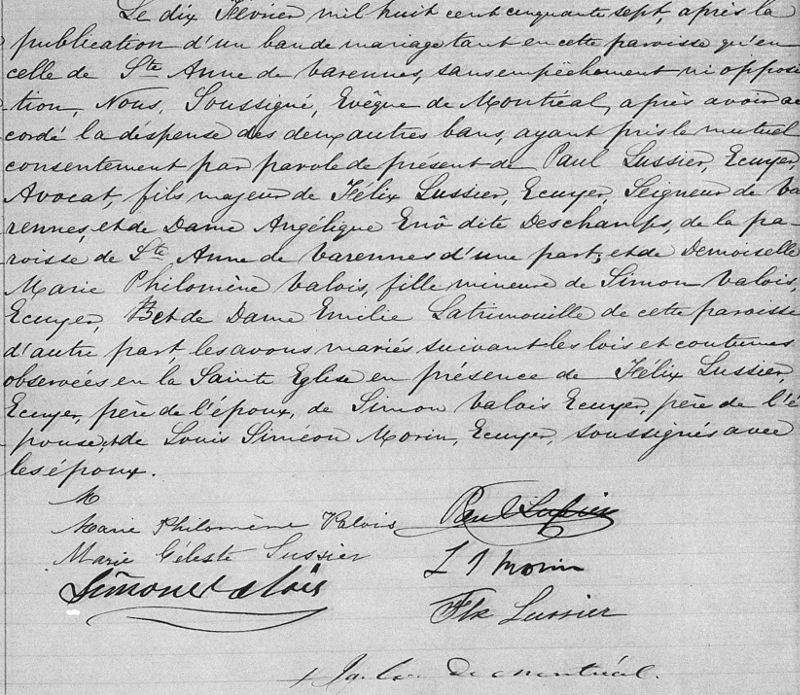 Le dix Février mil huit cent cinquante sept, après la
publication d'un ban de mariage tant en cette paroisse qu'en
celle de Ste Anne de Varennes, sans empêchement ni opposi
-tion, Nous, Soussigné, Evêque de Montréal, après avoir ac
cordé la dispense des deux autres bans, ayant pris le mutuel
consentement par parole de présent de Paul Lussier, Ecuyer
Avocat, fils majeur de Félix Lussier, Ecuyer, Seigneur de Va
rennes, et de Dame Angélique Enô dite Deschamps, de la pa-
roisse de Ste Anne de Varennes d'une part; et de Demoiselle
Marie Philomène Valois, fille mineure de Simon Valois,
Ecuyer, et de Dame Emilie Latrimouille de cette paroisse
d'autre part, les avons mariés suivant les lois et coutumes
observées en la Sainte Eglise en présence de Félix Lussier,
Ecuyer, père de l'époux, de Simon Valois Ecuyer, père de l'é
pouse, et de Louis Siméon Morin, Ecuyer, soussignés avec
les époux.
M
Marie Philomène Valois Paul Lussier
Marie Céleste Lussier L S Morin
Simon Valois
Flx Lussier
+ de Montréal.